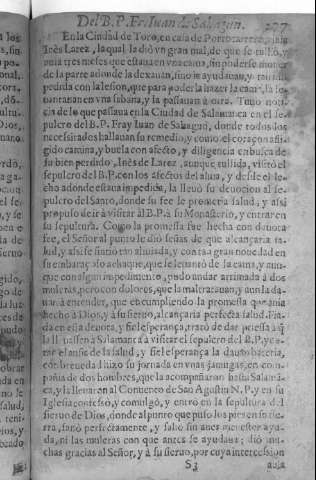 Del B. P. Fr. Juan de Sahagun. 277
En la Ciudad de Toro, en casa de Portocarrero,
Inès Larez, la qual la diò vn gran mal, de que se tullò, y
auia tres meses que estaua en vna cama, sin poderse mouer
de la parte adonde la dexauan, sino la ayudauan, y
pedida con la lesion, que para poderla hazer la cama, la le
uantauan en vna sabana, y la passauan à otra. Tuuo noti-
cia de lo que passaua en la Ciudad de Salamanca en el se-
pulcro del B. P. Fray Iuan de Sahagun, donde todos los
necessitados hallauan su remedio, y como el coraçon afli-
gido camina, y buela con afecto, y diligencia en busca de
su bien perdido, Inès de Larez, aunque tullida, visitò el
sepulcro del B. P. con los afectos del alma, y desde el le-
cho adonde estaua impedida, la lleuò su deuocion al se-
pulcro del Santo, donde su fee le prometia salud, y assi
propuso de ir à visitar al B. P. à su Monasterio, y entrar en
su sepultura. Como la promessa fue hecha con deuota
fee, el Señor al punto le diò señas de que alcançaria sa-
lud, y assi se sintiò tan aliuiada, y con tan gran nouedad en
su embaraçado achaque, que se leuantò de la cama, y aun-
que con algun impedimento, pudo andar arrimada à dos
muletas, pero con dolores, que la maltratauan, y aun la da-
uan à entender, que en cumpliendo la promessa que auia
hecho à Dios, y à su sieruo, alcançaria perfecta salud. Fia-
da en esta deuota, y fiel esperança, tratò de dar priessa à q̃
la lleuassen à Salamanca à visitar el sepulcro del B. P. y co-
mo el ansia de la salud, y fiel esperança la daua bateria,
con breuedad hizo su jornada en vnas jamugas, en com-
pañia de dos hombres, que la acompañaron hasta Salama-
ca, y la lleuaron al Conuento de San Agustin N. P. y en su
Iglesia confesso, y comulgò, y entrò en la sepultura del
sieruo de Dios, donde al punto que puso los pies en su tie-
rra, sanò perfectamente, y saliò sin auer menester ayu-
da, ni las muletas con que antes se ayudaua; diò mu-
chas gracias al Señor, y à su sieruo, por cuya intercession
S 3